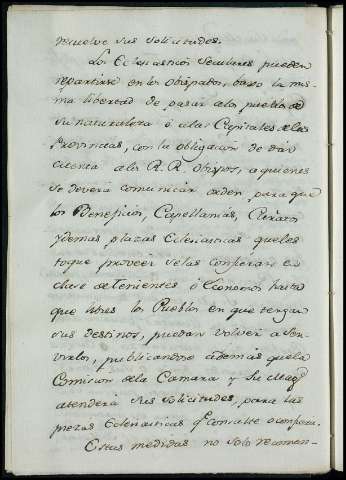 resuelve sus solicitudes.
Los Eclesiasticos Seculares pueden
repartirse en los obispados, baxo la mis-
ma libertad de pasar alos pueblos de
su naturaleza ó alas Capitales delas
Provincias, con la obligacion de dar
cuenta alos R.R. Obispos, aquienes
se deverá comunicar orden para que
los Beneficios, Capellanias, Curatos
ydemas plazas Eclesiasticas queles
toque proveer selas confieran en
clase deTenientes ó Economos hasta
que libres los Pueblos en que tengan
sus destinos, puedan volver a Ser-
virlos, publicandose ademas quela
Comision dela Camara y Su Magd
atenderá sus solicitudes, para las
piezas Eclesiasticas qe consulte o
Estas medidas no solo recomen-